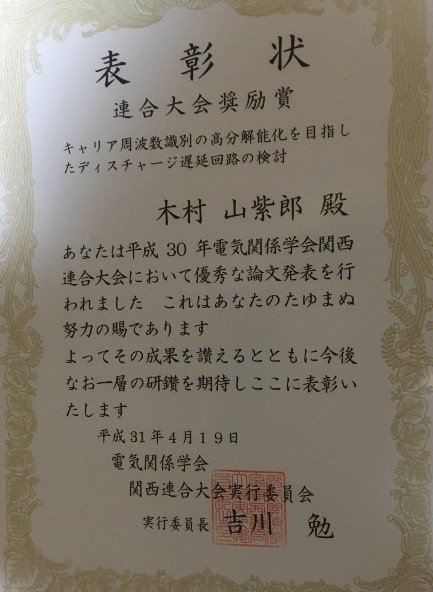 表彰状
連合大会奨励賞
キャリア周波数識別の高分解能化を目指し
たディスチャージ遅延回路の検討
木村 山紫郎 殿
あなたは平成 30 年電気関係学会関西
連合大会において優秀な論文発表を行
われました これはあなたのたゆまぬ
努力の賜であります
よってその成果を讃えるとともに今後
なお一層の研鑽を期待しここに表彰い
たします
平成31年4月19日
電気関係学会
関西連合大会実行委員会
実行委員長 吉川 勉